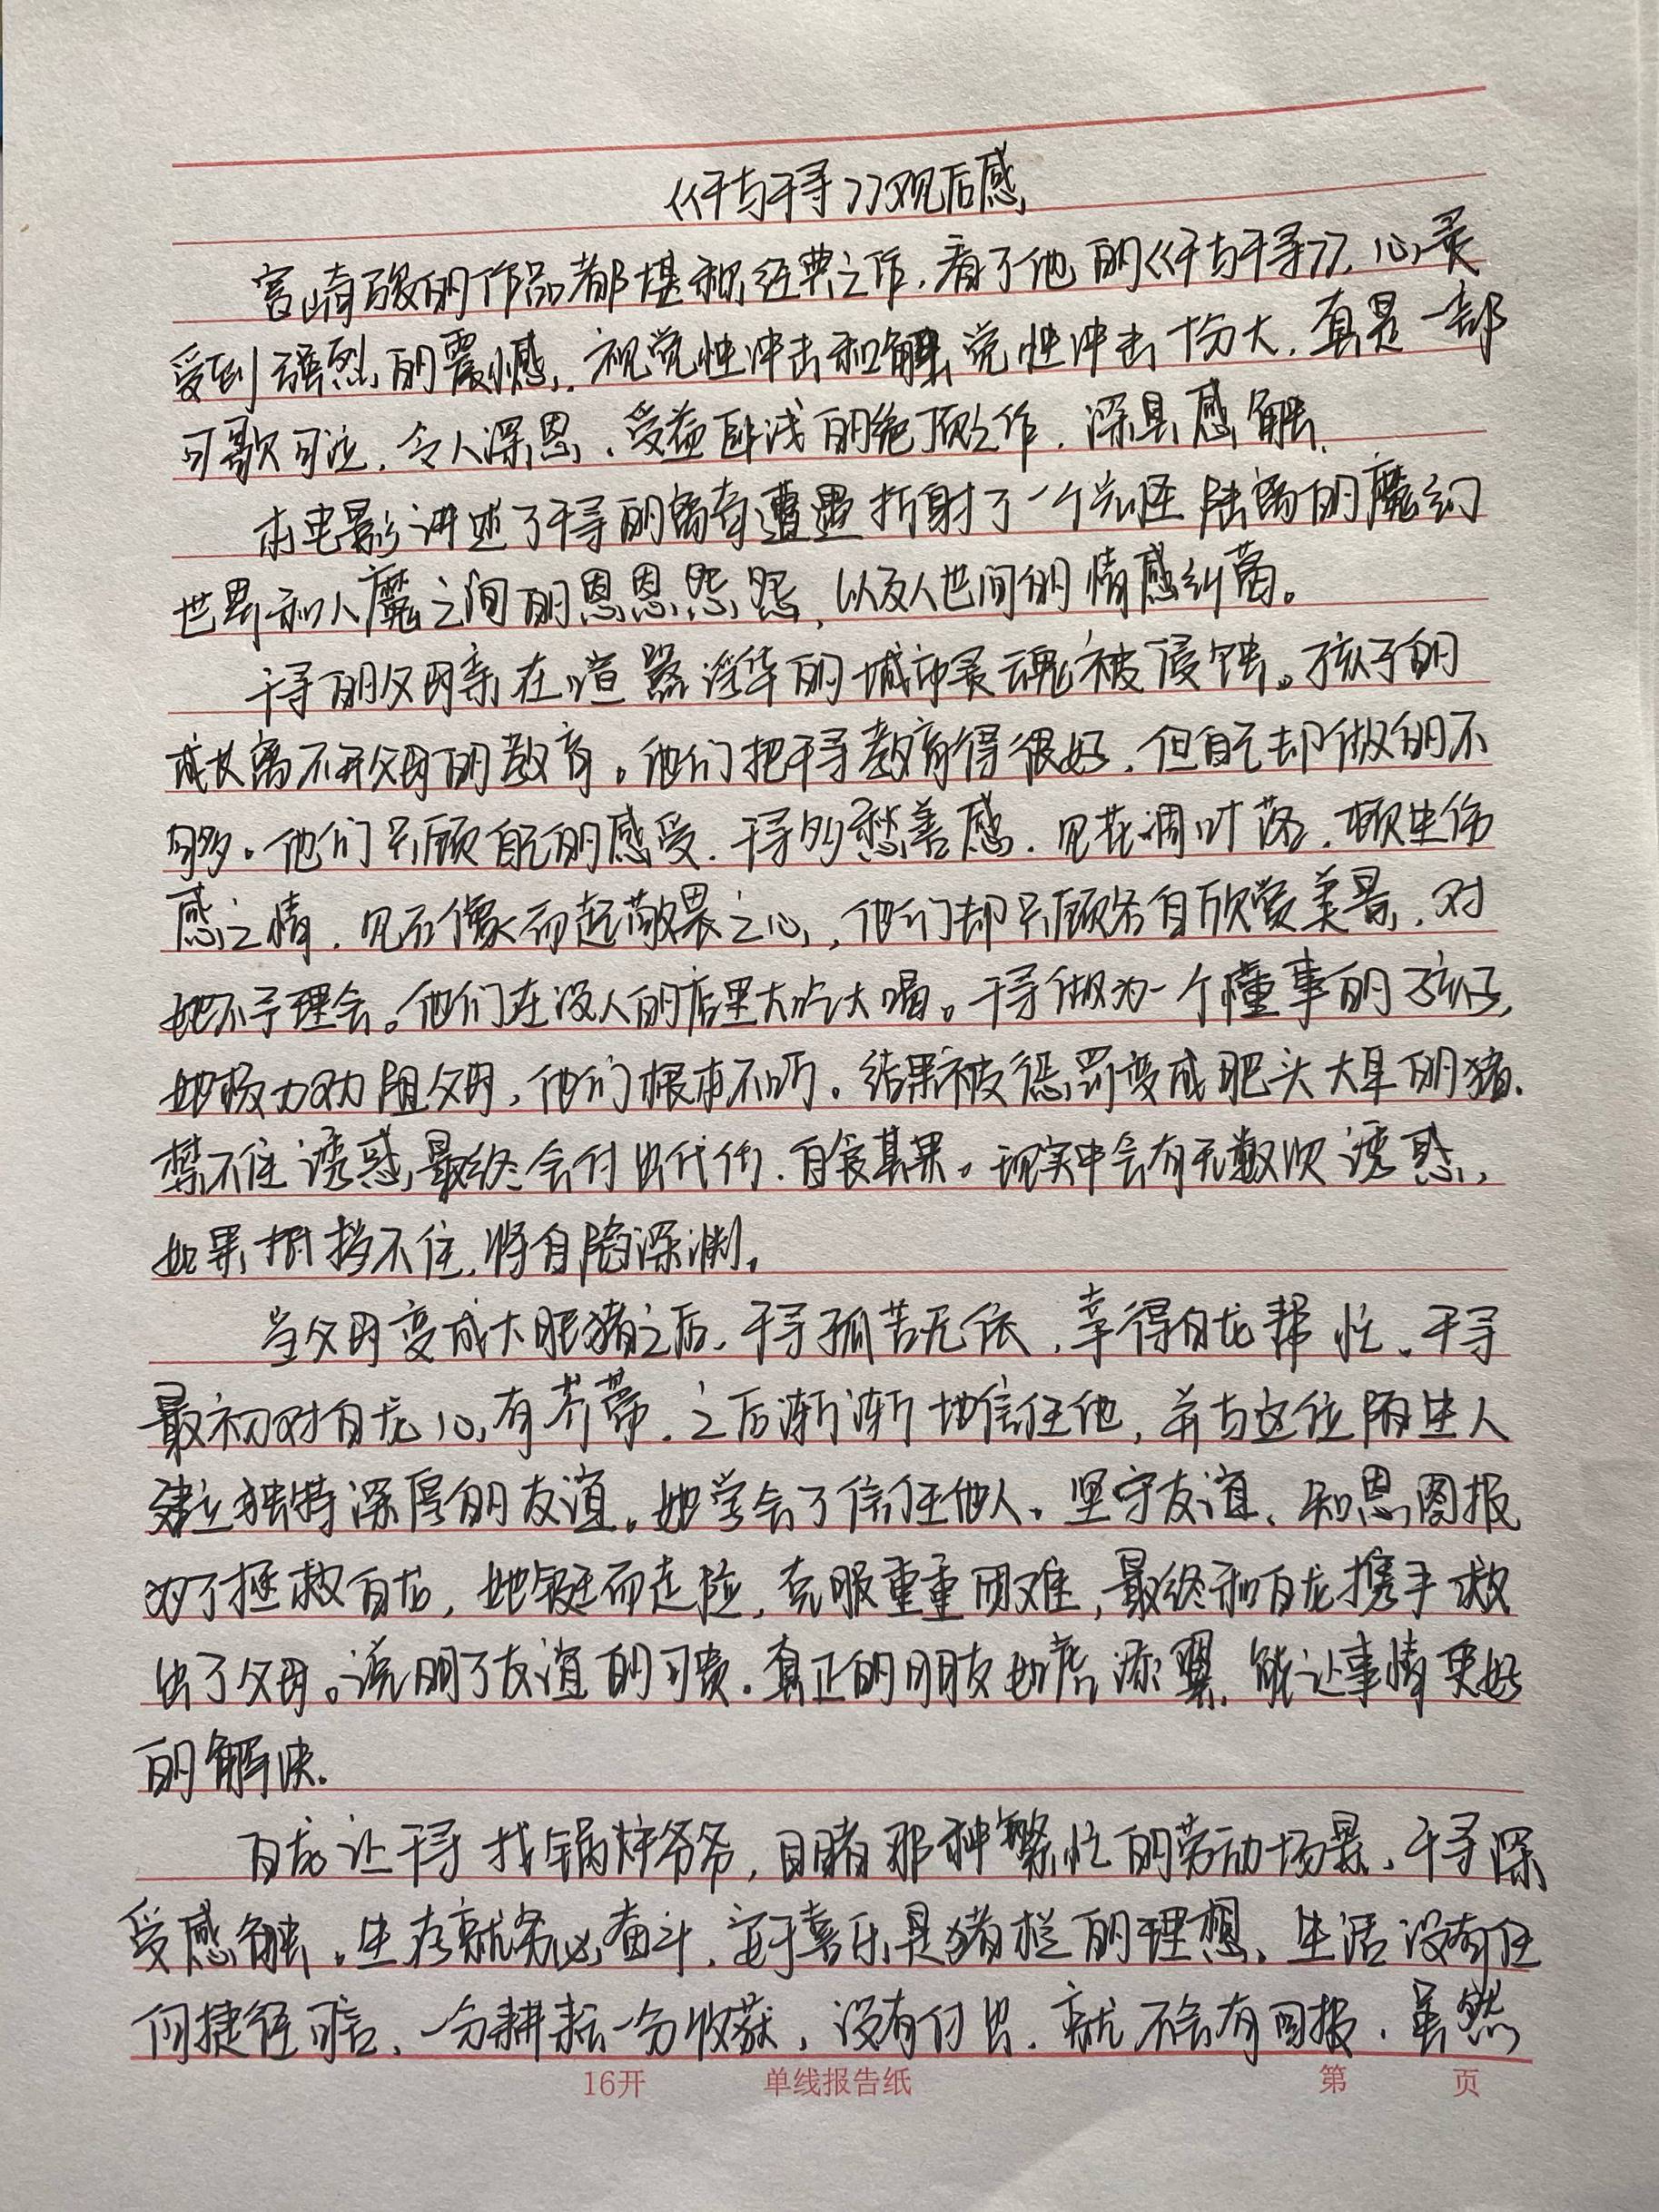 《千与千寻》观后感
宫崎骏的作品都堪称经典之作，看了他的《千与千寻》，心灵
受到强烈的震憾，视觉性冲击和触觉性冲击十分大，真是一部
可歌可泣，令人深思、受益匪浅的绝顶之作，深具感触。
本电影讲述了千寻的离奇遭遇折射了一个光怪陆离的魔幻
世界和人魔之间的恩恩怨怨，以及人世间的情感纠葛。
千寻的父母亲在喧嚣浮华的城市灵魂被侵蚀。孩子的
成长离不开父母的教育。他们把千寻教育得很好，但自己却做的不
够。他们只顾自己的感受，千寻多愁善感，见花凋叶落，顿生伤
感之情，见石像而起敬畏之心，他们却只顾各自欣赏美景，对
她不予理会。他们在没人的店里大吃大喝。千寻做为一个懂事的孩子，
她极力劝阻父母，他们根本不听。结果被惩罚变成肥头大耳的猪。
禁不住诱惑，最终会付出代价，自食其果。现实中会有无数次诱惑，
如果抵挡不住，将自陷深渊。
当父母变成大肥猪之后，千寻孤苦无依，幸得白龙帮忙。千寻
最初对白龙心有芥蒂，之后渐渐地信任他，并与这位陌生人
建立独特深厚的友谊。她学会了信任他人、坚守友谊、知恩图报
为了拯救白龙，她铤而走险，克服重重困难，最终和白龙携手救
出了父母。说明了友谊的可贵。真正的朋友如虎添翼，能让事情更好
的解决。
白龙让千寻找锅炉爷爷，目睹那种繁忙的劳动场景，千寻深
受感触。生存就务必奋斗，安于喜乐是猪栏的理想，生活没有任
何捷径可言，一分耕耘一分收获，没有付出，就不会有回报。虽然
16开 单线报告纸 第 页